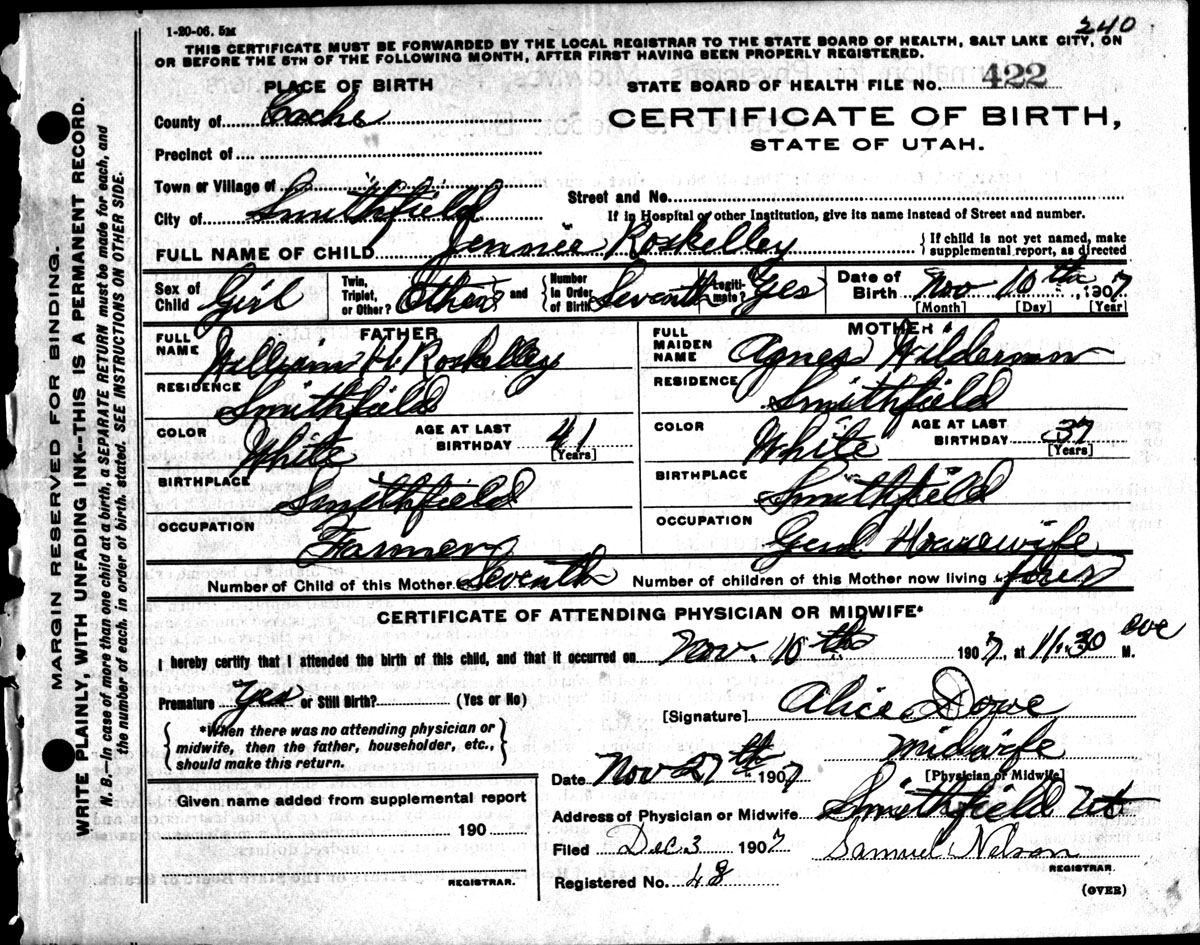 1-20-06. 5M
240
THIS CERTIFICATE MUST BE FORWARDED BY THE LOCAL REGISTRAR TO THE STATE BOARD OF HEALTH, SALT LAKE CITY, ON
OR BEFORE THE 5TH OF THE FOLLOWING MONTH, AFTER FIRST HAVING BEEN PROPERLY REGISTERED.
PLACE OF BIRTH
STATE BOARD OF HEALTH FILE NO. 422
County of Cache
CERTIFICATE OF BIRTH,
STATE OF UTAH.
Precinct of
Town or Village of
Street and No.
City of Smithfield
If in Hospital or other Institution, give its name instead of Street and number.
FULL NAME OF CHILD Jennie Roskelley
{ If child is not yet named, make
supplemental report, as directed
Sex of Child Girl
Twin, Triplet, or Other? Other and { Number in Order of Birth Seventh
Legitimate? Yes
Date of Birth Nov 10th, 1907
[Month] [Day] [Year]
FATHER
FULL NAME William H. Roskelley
RESIDENCE Smithfield
COLOR White
AGE AT LAST BIRTHDAY 41
[Years]
BIRTHPLACE Smithfield
OCCUPATION Farmer
MOTHER
FULL MAIDEN NAME Agnes
RESIDENCE Smithfield
COLOR White
AGE AT LAST BIRTHDAY 37
[Years]
BIRTHPLACE Smithfield
OCCUPATION Genl Housewife
Number of Child of this Mother Seventh Number of children of this Mother now living
CERTIFICATE OF ATTENDING PHYSICIAN OR MIDWIFE*
I hereby certify that I attended the birth of this child, and that it occurred on Nov. 10th 1907, at 11.30 eve M.
Premature Yes or Still Birth? (Yes or No)
{ *When there was no attending physician or
midwife, then the father, householder, etc.,
should make this return. }
[Signature] Alice
Midwife
[Physician or Midwife]
Date Nov 27th 1907
Address of Physician or Midwife Smithfield Ut
Given name added from supplemental report
190
REGISTRAR.
Filed Dec 3 1907 Samuel Nelson
REGISTRAR.
Registered No. 48
(OVER)
MARGIN RESERVED FOR BINDING.
WRITE PLAINLY, WITH UNFADING INK--THIS IS A PERMANENT RECORD.
N. B.—In case of more than one child at a birth, a SEPARATE RETURN must be made for each, and
the number of each, in order of birth, stated. SEE INSTRUCTIONS ON OTHER SIDE.